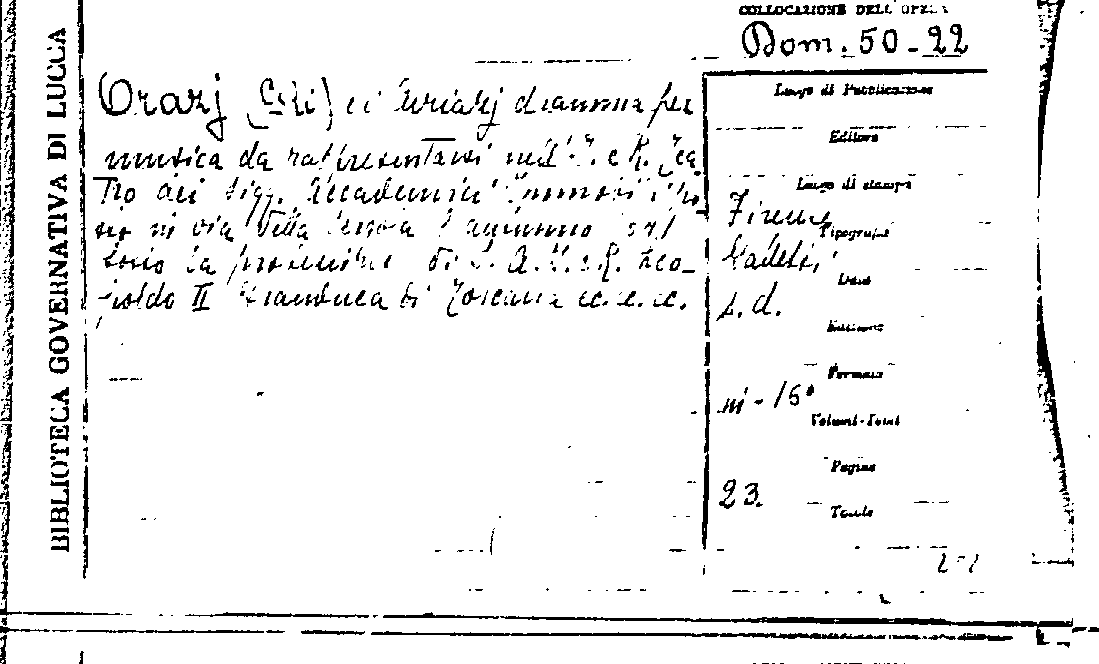 COLLOCAZIONE DELL'OPERA
Dom. 50-22
BIBLIOTECA GOVERNATIVA DI LUCCA
Orazj (Gli) e i Curiazj dramma per
musica da rappresentarsi nell'I. e R. Tea
tro dei Sigg. Accademici Immobili po
sto in via della l'autunno
sotto la protezione di S. A. I. e R. Leo-
poldo II Granduca di Toscana ec. ec. ec.
Luogo di Pubblicazione
Editore
Luogo di stampa
Firenze
Tipografia
Data
s. d.
Edizione
Formato
in-16°
Volumi-Tomi
Pagine
23.
Tavole